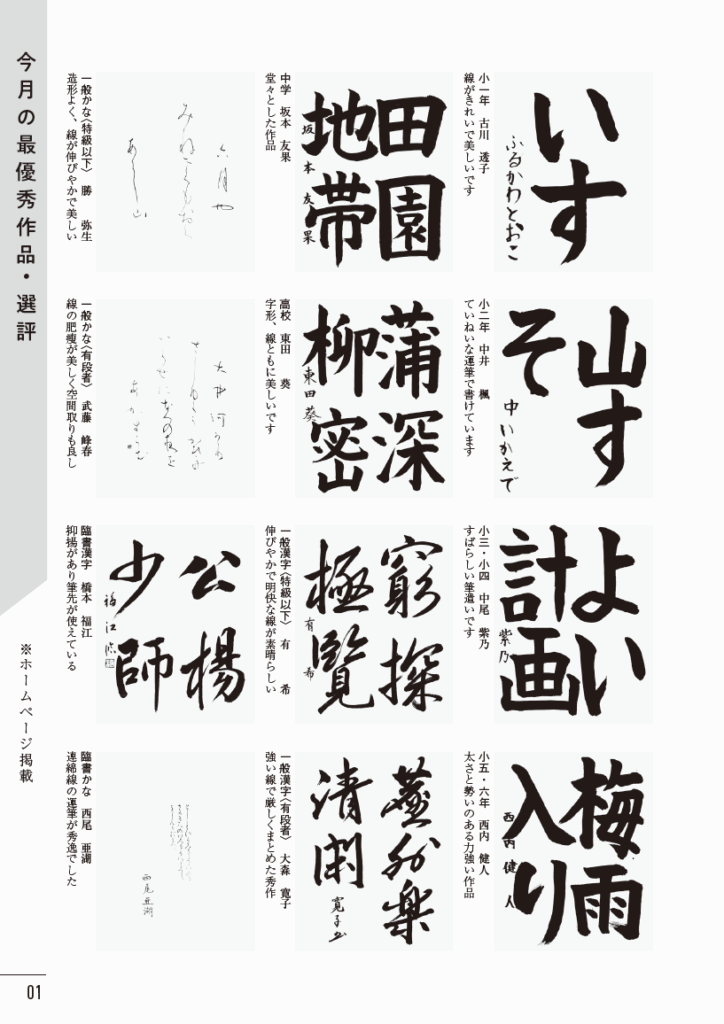 今月の最優秀作品・選評
※ホームページ掲載
いす
ふるかわとおこ
小一年 古川 透子
線がきれいで美しいです
田園
地帯
坂本友果
中学 坂本 友果
堂々とした作品
六月や
あらし山
一般かな〈特級以下〉 勝 弥生
造形よく、線が伸びやかで美しい
山す
そ
中いかえで
小二年 中井 楓
ていねいな運筆で書けています
蒲深
柳密
東田葵
高校 東田 葵
字形、線ともに美しいです
一般かな〈有段者〉 武藤 峰春
線の肥痩が美しく空間取りも良し
よい
計画
紫乃
小三・小四 中尾 紫乃
すばらしい筆遣いです
窮探
極覧
有希
一般漢字〈特級以下〉 有 希
伸びやかで明快な線が素晴らしい
公楊
少師
福江
臨書漢字 橋本 福江
抑揚があり筆先が使えている
梅雨
入り
西内健人
小五・六年 西内 健人
太さと勢いのある力強い作品
清閑
寛子
一般漢字〈有段者〉 大森 寛子
強い線で厳しくまとめた秀作
西尾亜湖
臨書かな 西尾 亜湖
連綿線の運筆が秀逸でした
01